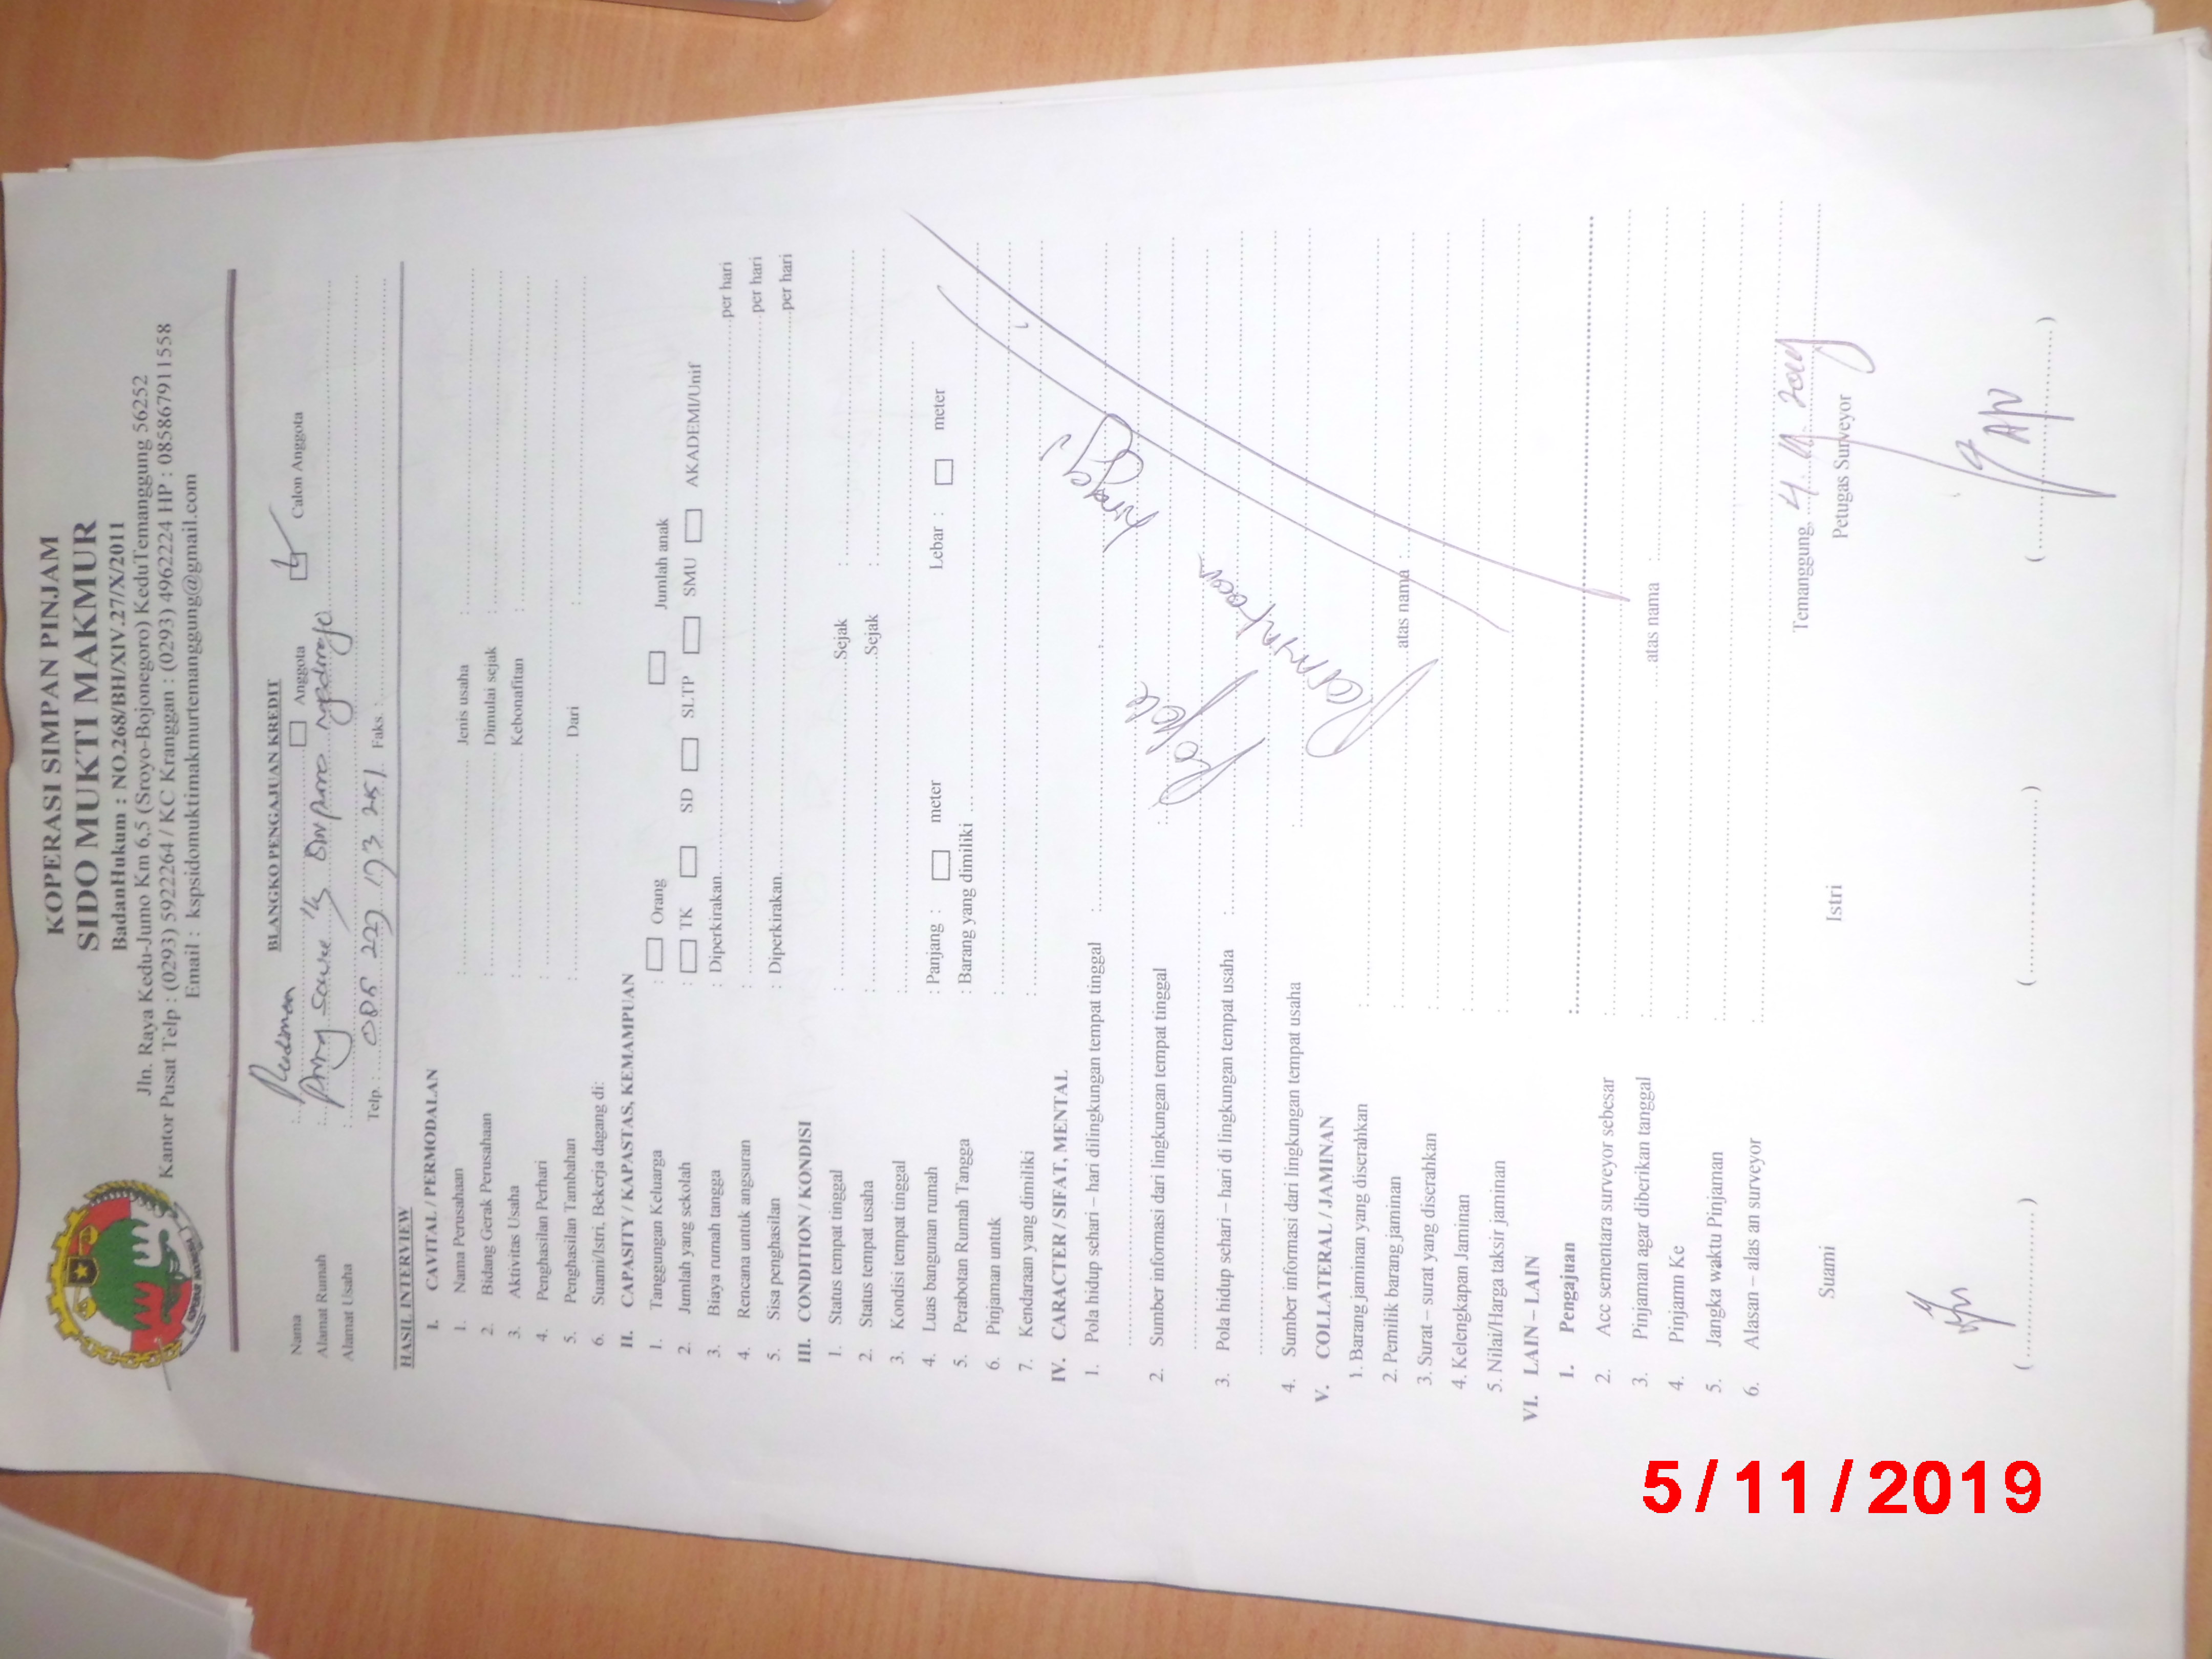 KOPERASI SIMPAN PINJAM
SIDO MUKTI MAKMUR
BadanHukum : NO.268/BH/XIV.27/X/2011
Jln. Raya Kedu-Jumo Km 6,5 (Sroyo-Bojonegoro) KeduTemanggung 56252
Kantor Pusat Telp : (0293) 5922264 / KC Kranggan : (0293) 4962224 HP : 085867911558
Email : kspsidomuktimakmurtemanggung@gmail.com
BLANGKO PENGAJUAN KREDIT
Nama : Anggota Calon Anggota
Alamat Rumah :
Alamat Usaha :
Telp. : 085 227 173 251 Faks. :
HASIL INTERVIEW
I. CAVITAL / PERMODALAN
1. Nama Perusahaan : Jenis usaha :
2. Bidang Gerak Perusahaan : Dimulai sejak :
3. Aktivitas Usaha : Kebonafitan :
4. Penghasilan Perhari :
5. Penghasilan Tambahan : Dari :
6. Suami/Istri, Bekerja dagang di:
II. CAPASITY / KAPASTAS, KEMAMPUAN
1. Tanggungan Keluarga : Orang Jumlah anak
2. Jumlah yang sekolah : TK SD SLTP SMU AKADEMI/Unif
3. Biaya rumah tangga : Diperkirakan per hari
4. Rencana untuk angsuran : per hari
5. Sisa penghasilan : Diperkirakan per hari
III. CONDITION / KONDISI
1. Status tempat tinggal : Sejak :
2. Status tempat usaha : Sejak :
3. Kondisi tempat tinggal :
4. Luas bangunan rumah : Panjang : meter Lebar : meter
5. Perabotan Rumah Tangga : Barang yang dimiliki
6. Pinjaman untuk :
7. Kendaraan yang dimiliki :
IV. CARACTER / SIFAT, MENTAL
1. Pola hidup sehari – hari dilingkungan tempat tinggal :
2. Sumber informasi dari lingkungan tempat tinggal :
3. Pola hidup sehari – hari di lingkungan tempat usaha :
4. Sumber informasi dari lingkungan tempat usaha :
V. COLLATERAL / JAMINAN
1. Barang jaminan yang diserahkan :
2. Pemilik barang jaminan : atas nama :
3. Surat – surat yang diserahkan :
4. Kelengkapan Jaminan :
5. Nilai/Harga taksir jaminan :
VI. LAIN – LAIN
1. Pengajuan :
2. Acc sementara surveyor sebesar :
3. Pinjaman agar diberikan tanggal : atas nama :
4. Pinjamn Ke :
5. Jangka waktu Pinjaman :
6. Alasan – alas an surveyor :
Temanggung,
Suami Istri Petugas Surveyor
(....................) (....................) (....................)
5/11/2019